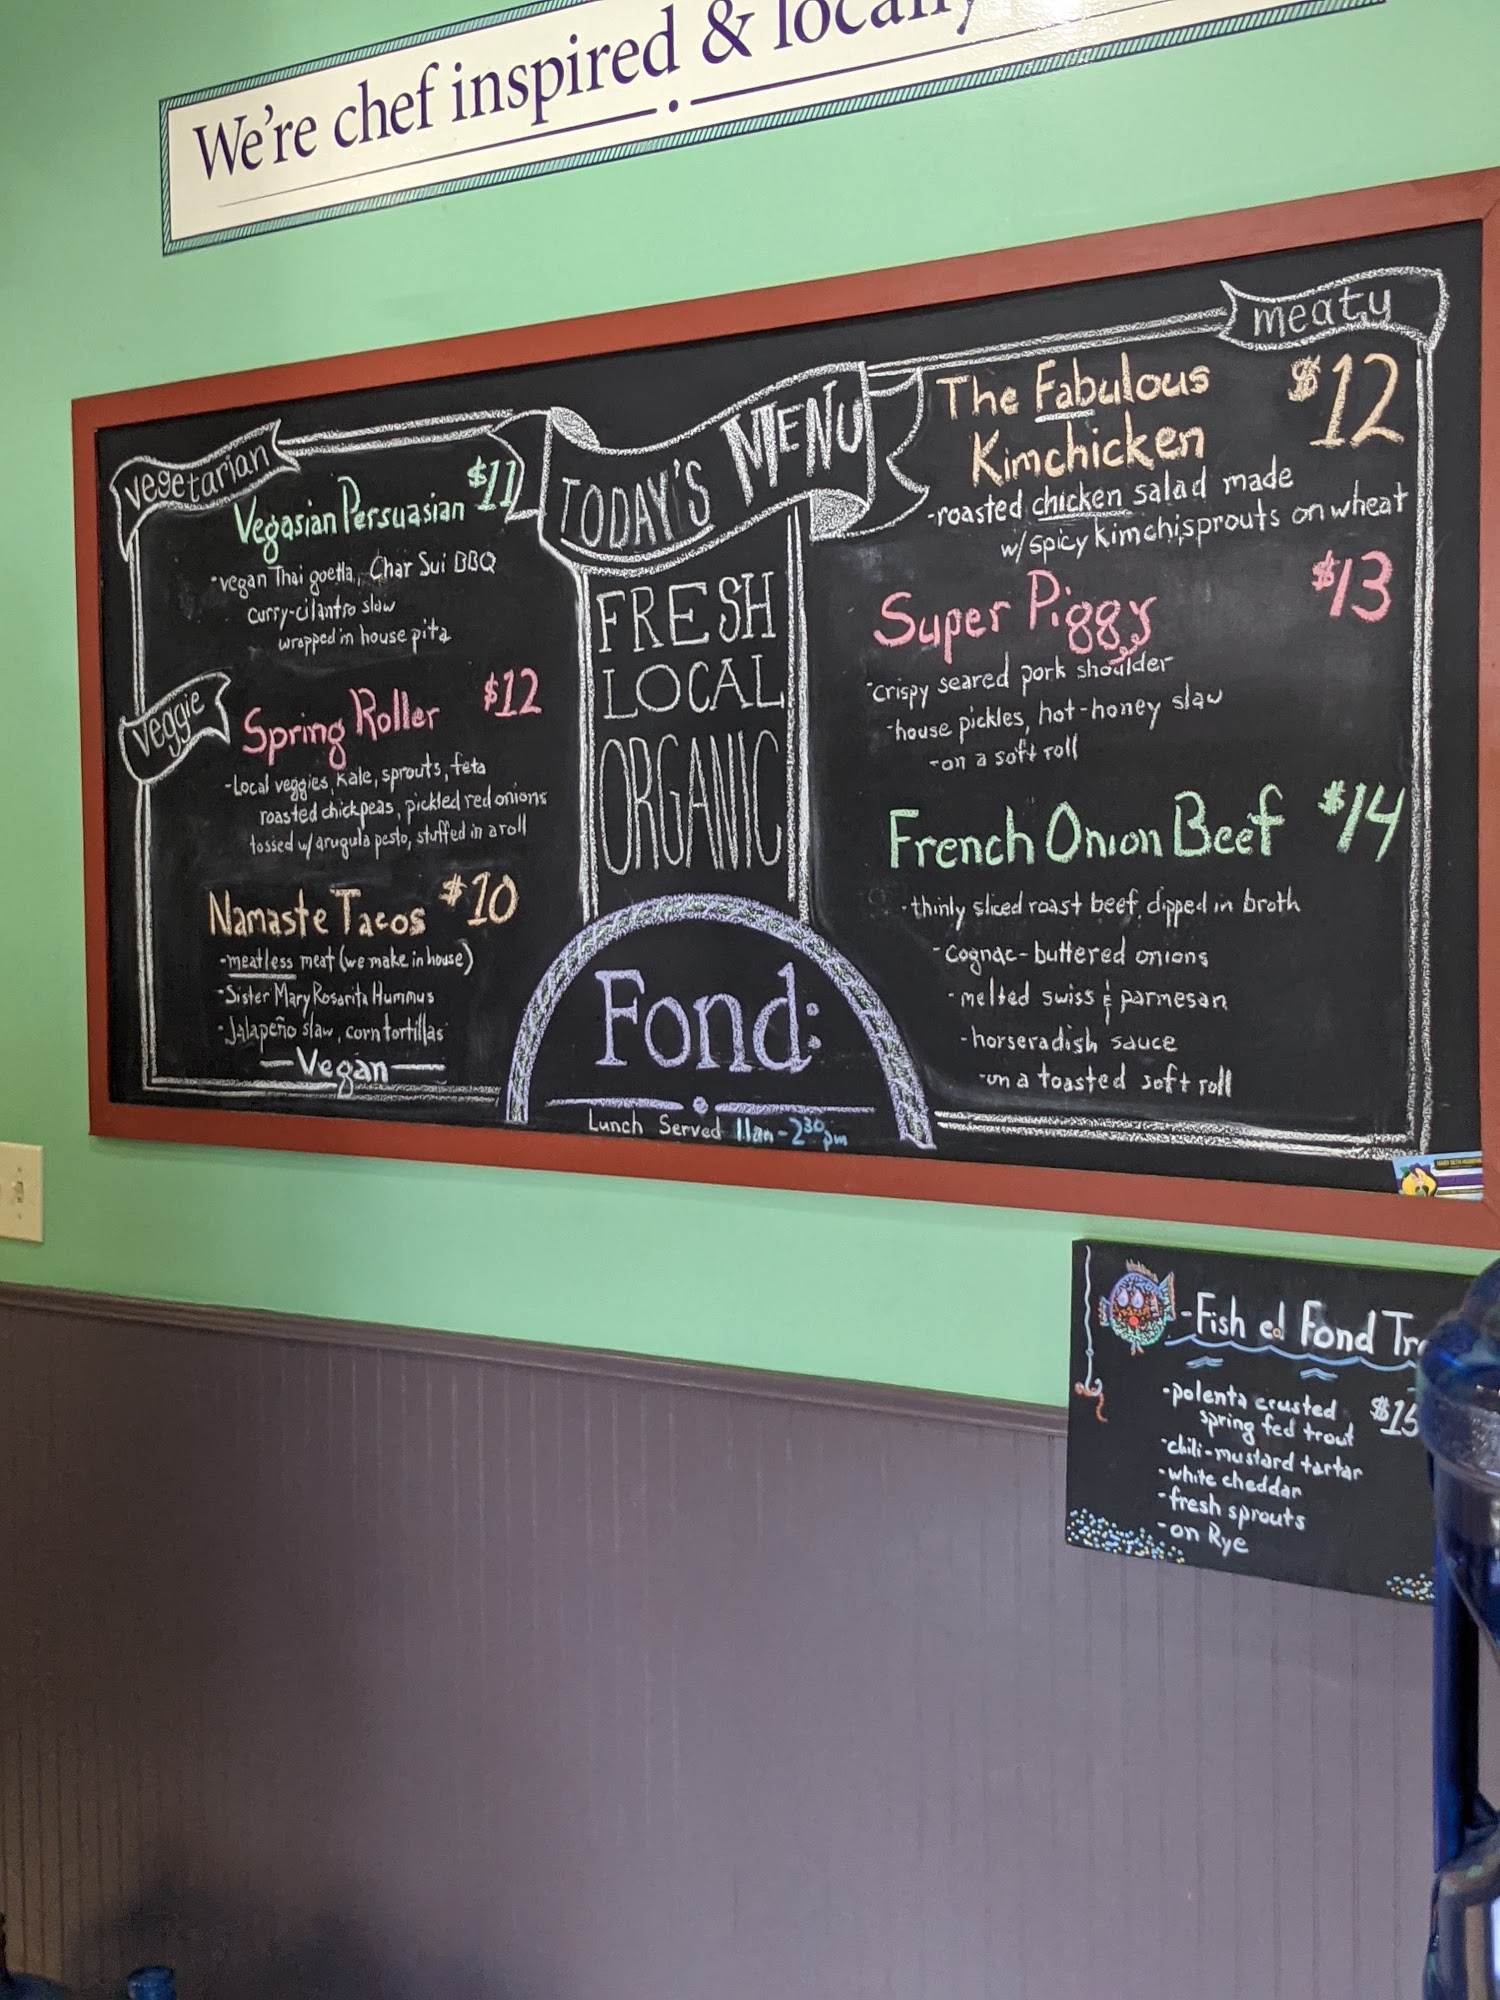 We're chef inspired & locally
vegetarian
Vegasian Persuasian $11
-vegan Thai goetta, Char Sui BBQ
curry-cilantro slaw
wrapped in house pita
veggie
Spring Roller $12
-Local veggies, Kale, sprouts, feta
roasted chickpeas, pickled red onions
tossed w/ arugula pesto, stuffed in a roll
Namaste Tacos $10
-meatless meat (we make in house)
-Sister Mary Rosarita Hummus
-Jalapeño slaw, corn tortillas
-Vegan-
TODAY'S MENU
FRESH
LOCAL
ORGANIC
Fond:
Lunch Served 11am-2:30pm
meaty
The Fabulous $12
Kimchicken
-roasted chicken salad made
w/ spicy kimchi, sprouts on wheat
Super Piggy $13
-crispy seared pork shoulder
-house pickles, hot-honey slaw
-on a soft roll
French Onion Beef $14
-thinly sliced roast beef, dipped in broth
-Cognac-buttered onions
-melted swiss & parmesan
-horseradish sauce
-on a toasted soft roll
-Fish ed Fond
-polenta crusted $15
spring fed trout
-chili-mustard tartar
-white cheddar
-fresh sprouts
-on Rye